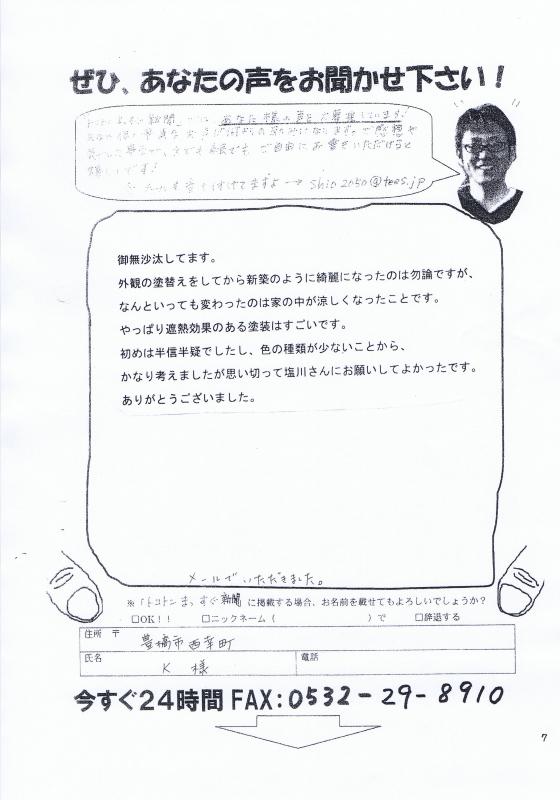 ぜひ、あなたの声をお聞かせ下さい！
あなた様の声を
ご自由にお書きいただけると
嬉しいです！
メールも受け付けてますよ→ shio2050@tees.jp
御無沙汰してます。
外観の塗替えをしてから新築のように綺麗になったのは勿論ですが、
なんといっても変わったのは家の中が涼しくなったことです。
やっぱり遮熱効果のある塗装はすごいです。
初めは半信半疑でしたし、色の種類が少ないことから、
かなり考えましたが思い切って塩川さんにお願いしてよかったです。
ありがとうございました。
メールでいただきました。
※「トコトンまっすぐ新聞」に掲載する場合、お名前を載せてもよろしいでしょうか？
□OK！！ □ニックネーム（ ）で □辞退する
住所 〒 豊橋市西幸町
氏名 K 様 電話
今すぐ24時間 FAX：0532-29-8910
7